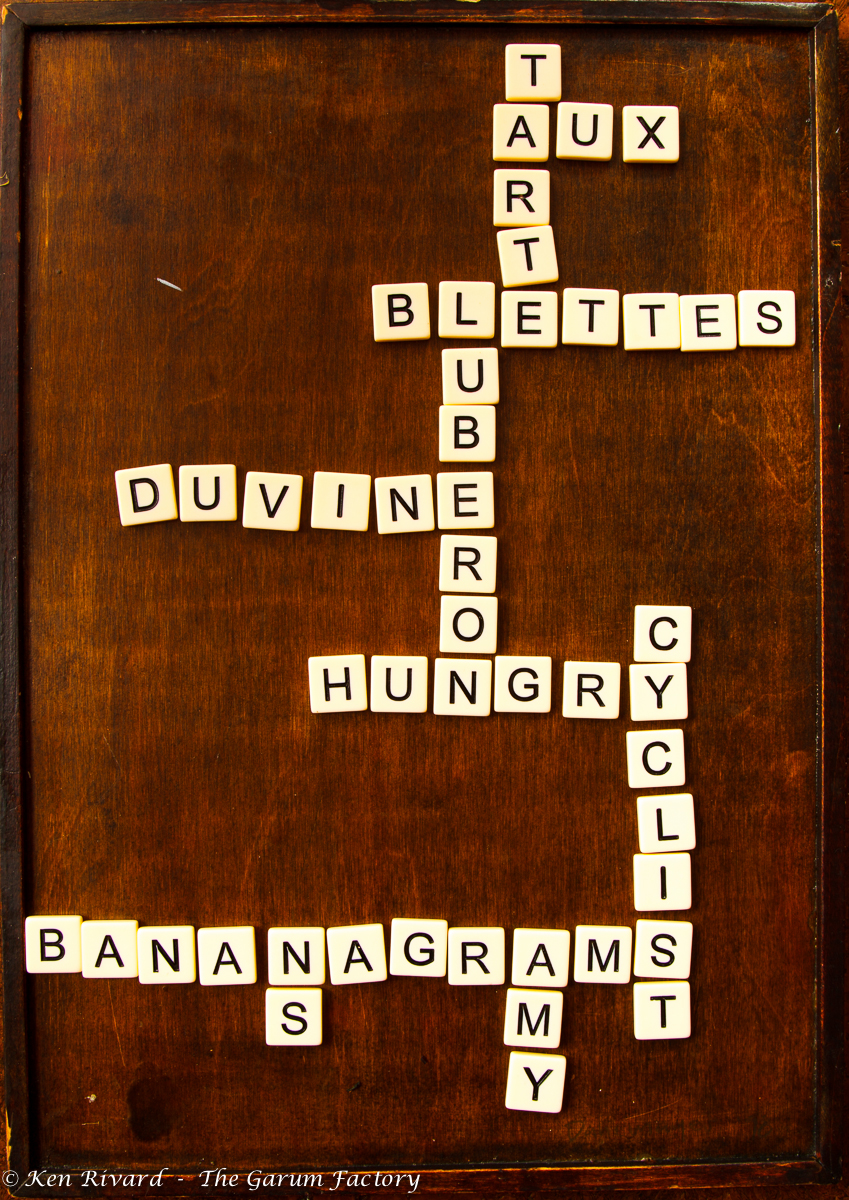 TARTE
AUX
BLETTES
LUBERON
DUVINE
HUNGRY
CYCLIST
BANANAGRAMS
NS
AMY
© Ken Rivard - The Garum Factory